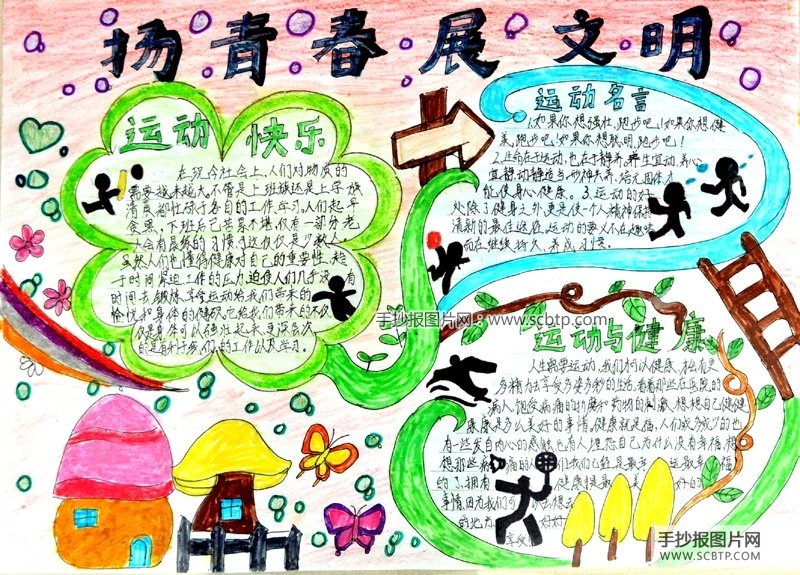 扬青春展文明
运动 快乐
在现今社会上,人们对物质的
需要越来越大。不管是上班族还是上学族
清晨都忙碌于各自的工作学习。人们起早
贪黑,下班后已劳累不堪,仅有一部分老
人会有晨练的习惯,这仅仅是少数人。
虽然人们也懂得健康对自己的重要性,
于时间紧迫工作的压力,迫使人们几乎没有
时间去锻炼,享受运动给我们带来的
愉悦和身体的健硕。它给我们带来的不仅
仅是身体可以强壮起来,更深层次
的是有利于我们的工作以及学习。
运动名言
1.如果你想强壮,跑步吧!如果你想健
美,跑步吧!如果你想聪明,跑步吧!
2.生命在于运动,也在于静养。养生宜动,养心
宜静。动静适当,形神共养,培元固本,才
能使身心健康。3.运动的好
处除了健身之外,更是使一个人精神保持
清新的最佳途径。运动的要义不在趣味
而在继续持久,养成习惯。
手抄报图片网:www.scbtp.com
运动与健康
人生需要运动,我们才可以健康,才会有更
多精力去享受多姿多彩的生活。看看那些在医院的
病人,饱受病痛的折磨和药物的刺激,想想自己健健
康康是多么美好的事情,健康就是福。人们或多或少的也
有一些发自内心的感触,也有人埋怨自己为什么没有幸福,想
想那些病痛的人
的了,拥有健康
事情,因为我们
手抄报图片网
WWW.SCBTP.COM